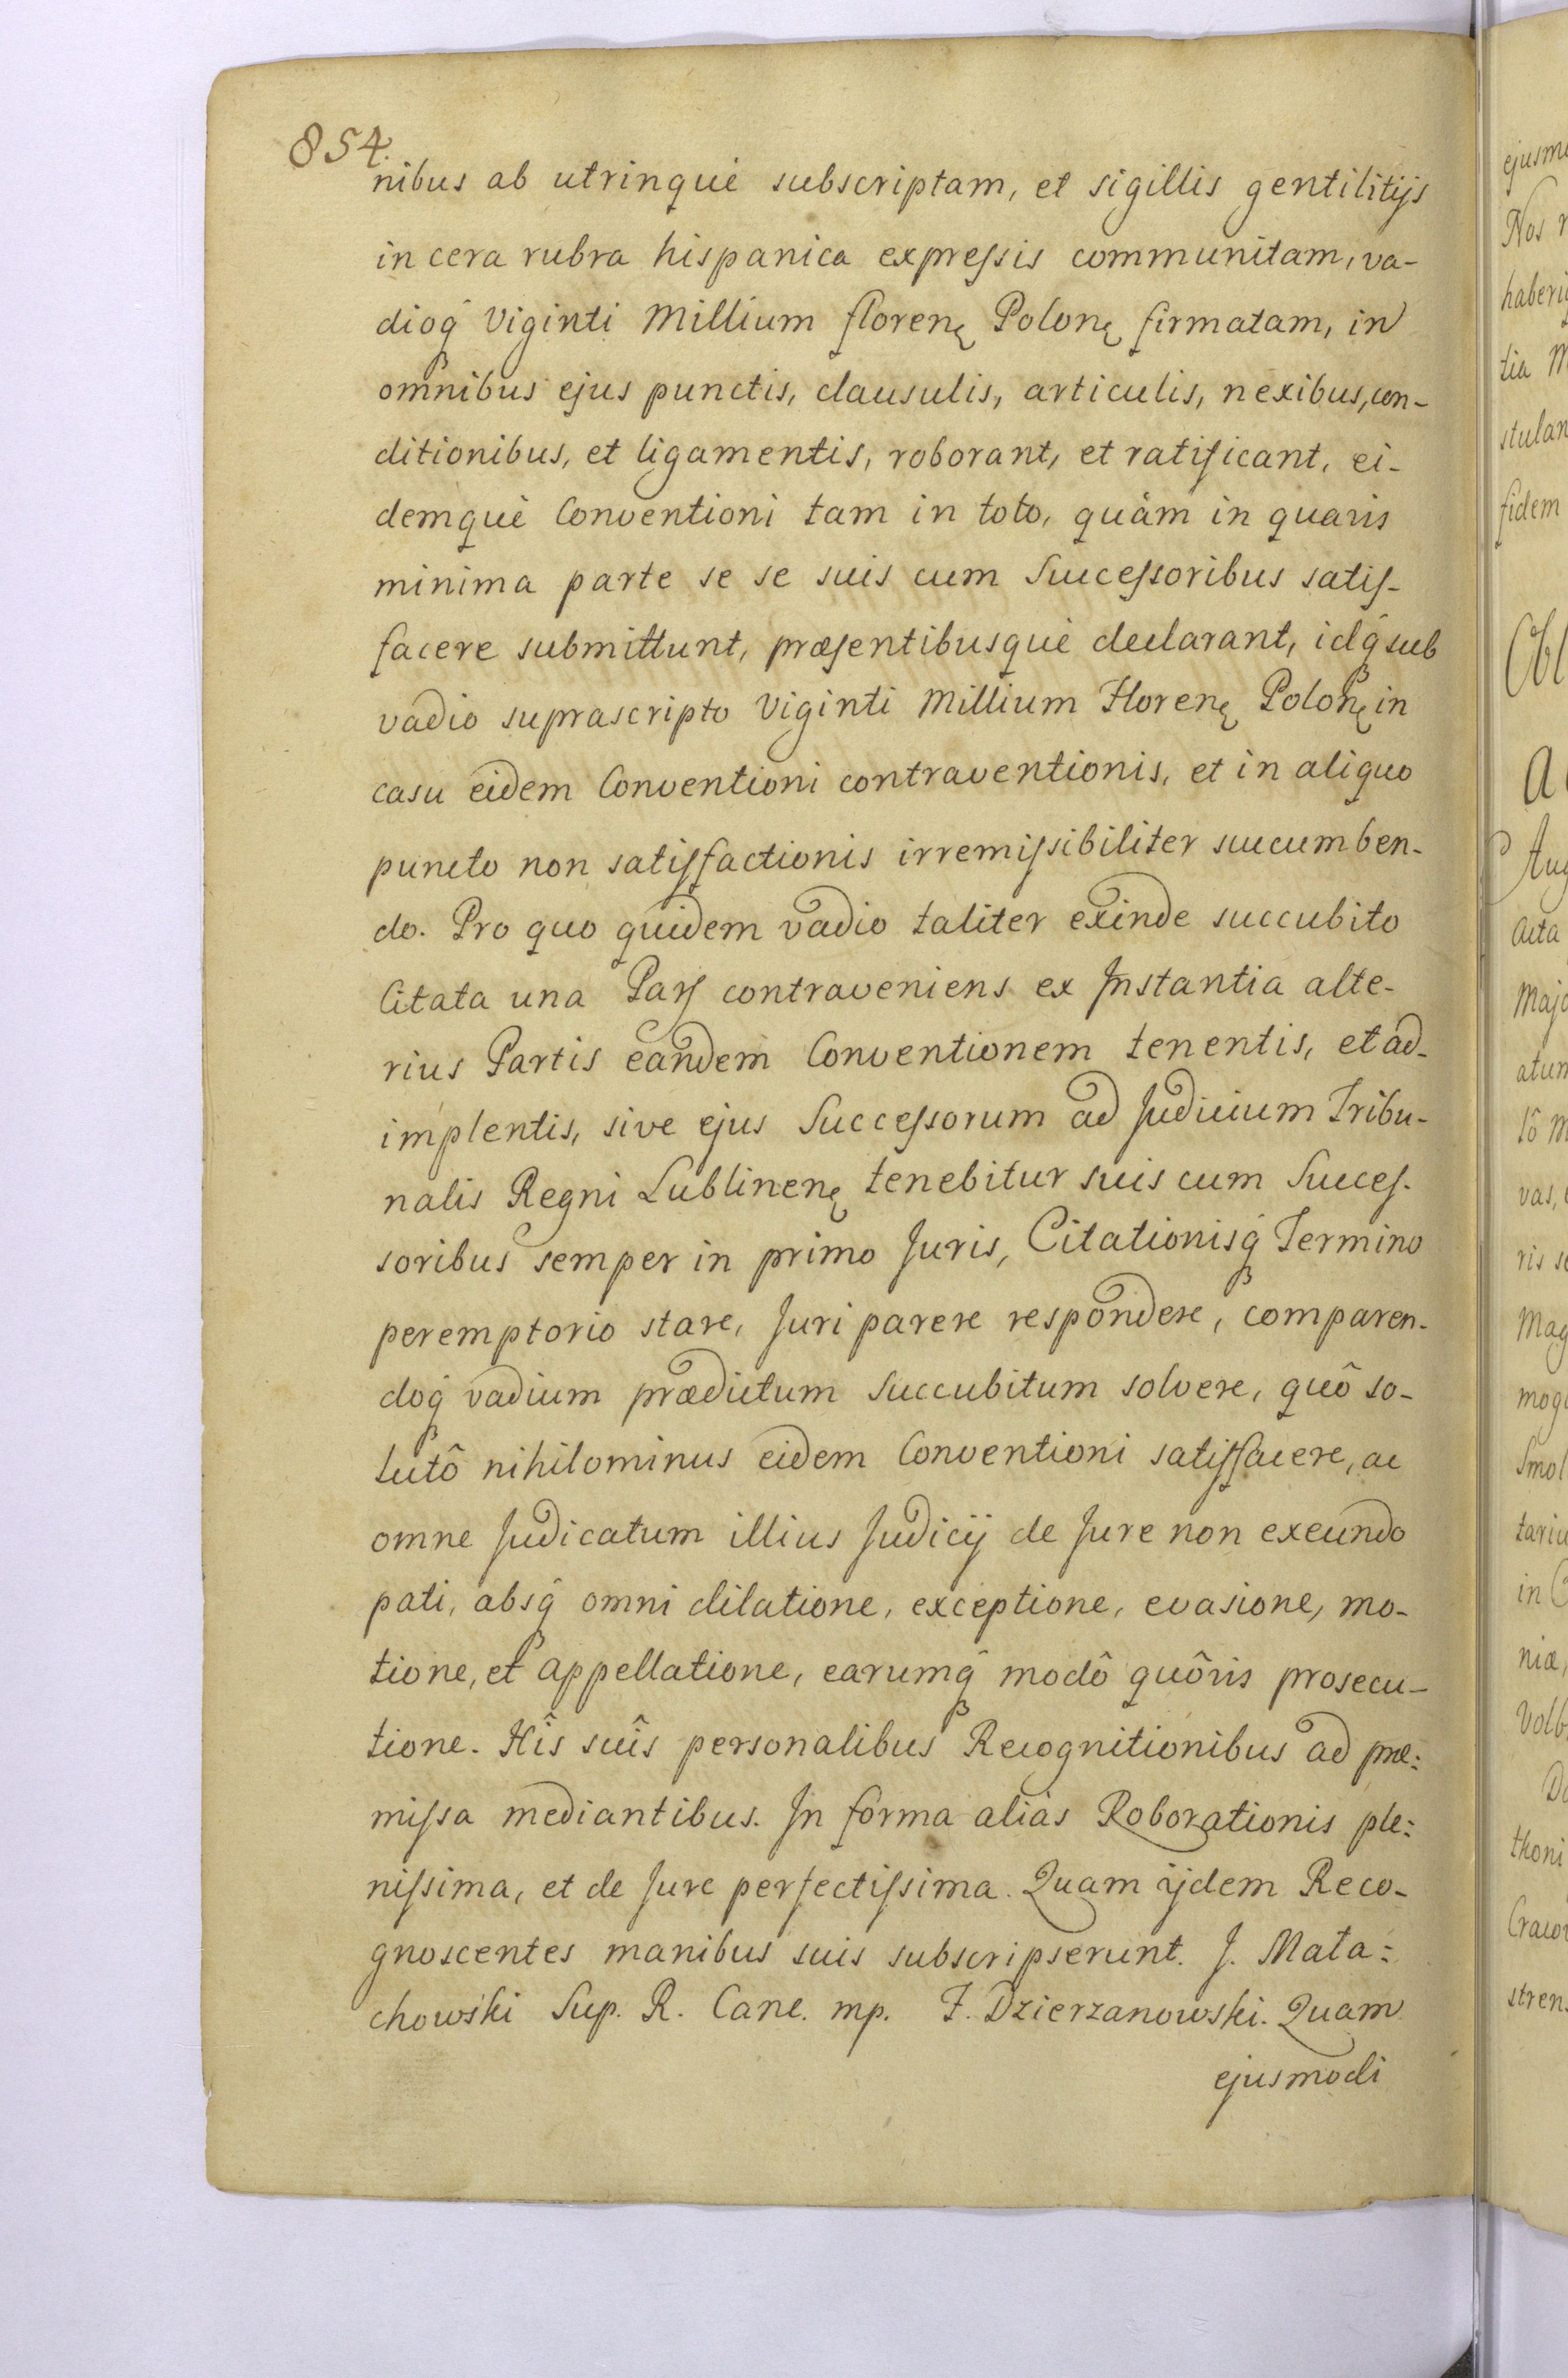 854.
nibus ab utrinquè subscriptam, et sigillis gentilitijs
in cera rubra hispanica expreſsis communitam, va-
dioq́ Viginti Millium florenę Polonę firmatam, in
omnibus ejus punctis, clausulis, articulis, nexibus, con-
ditionibus, et ligamentis, roborant, et ratificant, ei-
demquè Conventioni tam in toto, quàm in quavis
minima parte se se suis cum Succeſsoribus satiſ-
facere submittunt, præſentibusquè declarant, idq́ sub
vadio suprascripto Viginti Millium Florenę Polonę in
casu eidem Conventioni contraventionis, et in aliquo
puncto non satiſfactionis irremiſsibiliter succumben-
do. Pro quo quidem vadio taliter exinde succubito
Citata una Parſ contraveniens ex Instantia alte-
rius Partis eandem Conventionem tenentis, et ad-
implentis, sive ejus Succeſsorum ad Judicium Tribu-
nalis Regni Lublinenę tenebitur suis cum Succeſ-
soribus semper in primo Juris, Citationisq́ Termino
peremptorio stare, Juri parere respondere, comparen-
doq́ vadium prædictum succubitum solvere, quô so-
lutô nihilominus eidem Conventioni satiſfacere, ac
omne Judicatum illius Judicij de Jure non exeundo
pati, absq́ omni dilatione, exceptione, evasione, mo-
tione, et appellatione, earumq́ modô quôvis prosecu-
tione. Hîs suîs personalibus Recognitionibus ad præ:
miſsa mediantibus. In forma aliàs Roborationis ple:
niſsima, et de Jure perfectiſsima. Quam ijdem Reco-
gnoscentes manibus suis subscripserunt. J. Mała:
chowski Sup. R. Canc. mp. F. Dzierzanowski. Quam
ejusmodi
ejusmo
Nos
haberi
tia M
stulan
fidem
Obl
Aug
Acta
Majo
atum
lô M
vas,
ris se
Mag
mogi
Smol
tariu
in
niæ,
Volb
thoni
Cracov
stren.